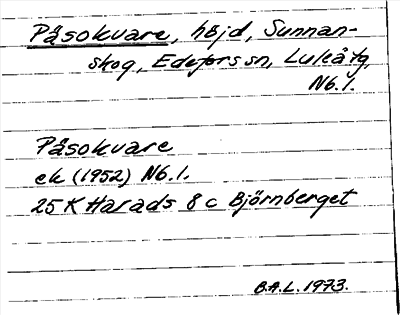 Påsokvare, höjd, Sunnan-
skog, Edefors sn, Luleå tg,
Nb. l.
Påsokvare
ek (1952) Nb. l.
25 K Harads 8 c Björnberget
B.A.L. 1973.